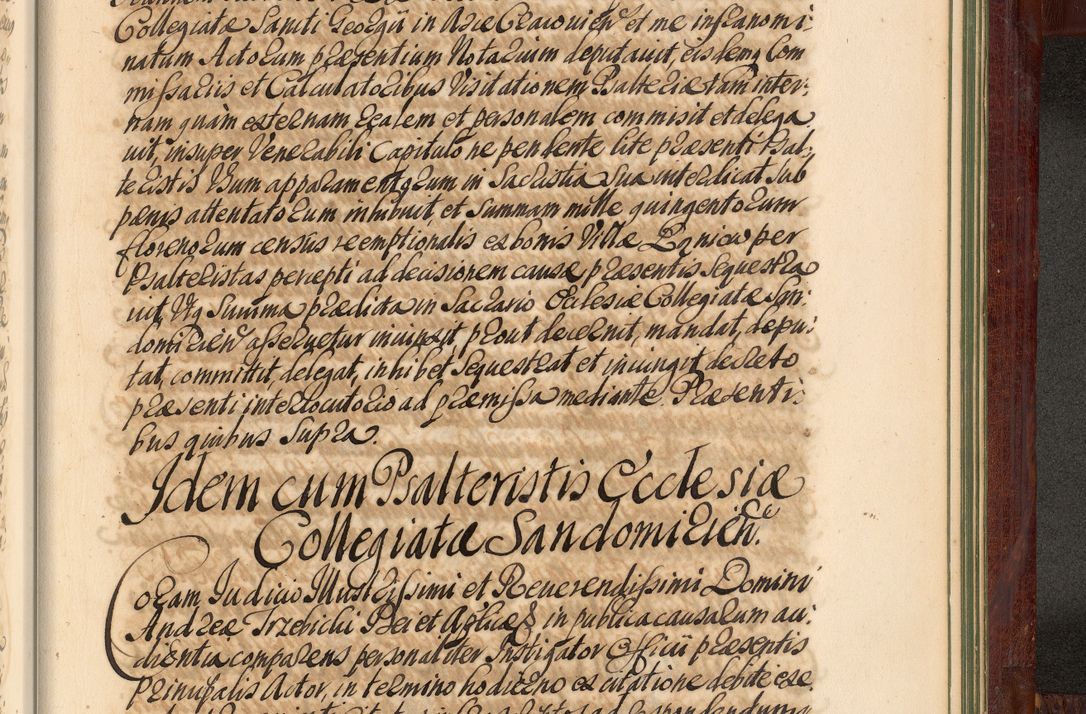 Collegiatæ Sancti Georgii in Arce Cracouien̄ et me infranomi:
natum Actorum præsentium Notarium deputauit, eisdemq̄ Com
missariis et Calculatoribus Visitationem Psalteriæ tam inter:
nam quàm externam realem et personalem commisit et delega
uit, insuper Venerabili Capitulo ne pendente lite præsenti Psal,
teristis Usum apparamentorum in Sacristia Sua interdicat sub
pœnis attentatorum inhibuit et Summam mille quingentorum
florenorum census reemptionalis ex bonis Villæ per
Psalteristas percepti ad decisionem causæ præsentis Sequestra
uit, Utq̄ Summa prædicta in Sacrario Ecclesiæ Collegiatæ San:
domirien̄ asseruetur iniunxit, prout decernit, mandat, depu:
tat, committit, delegat, inhibet sequestrat et iniungit decreto
præsenti interlocutorio ad præmissa mediante. Præsenti:
bus quibus Supra.
Idem cum Psalteristis Ecclesiæ
Collegiatæ Sandomirien̄.
Coram Iudicio Illustrissimi et Reuerendissimi Domini
Andreæ Trzebicki Dei et Aplicæ & in publica causarum au:
dientia comparens personaliter Instigator Officii præsentis
Principalis Actor, in termino hodierno ex citatione debite exe: